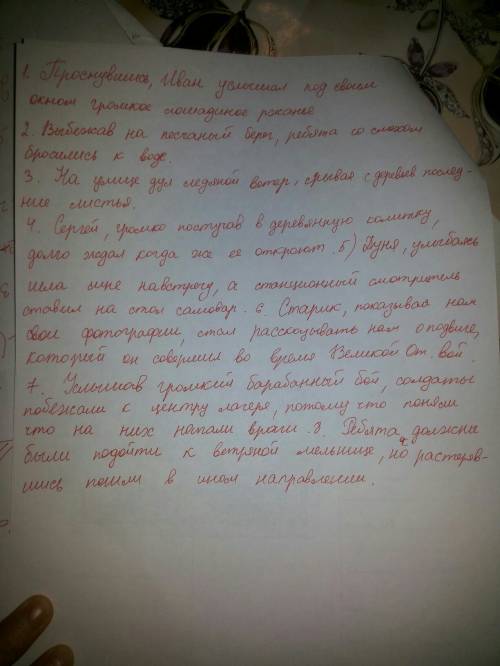 1. Проснувшись, Иван услышал под своим
окном громкое лошадиное ржанье
2. Выбежав на песчаный берег, ребята со смехом
бросились к воде.
3. На улице дул ледяной ветер, срывая с деревьев послед-
ние листья.
4. Сергей, громко постучав в деревянную калитку,
долго ждал когда же ее откроют. 5) Дуня, улыбаясь
шла мне навстречу, а станционный смотритель
ставил на стол самовар. 6. Старик, показывая нам
свои фотографии, стал рассказывать нам о подвиге,
который он совершил во время Великой От. Вой.
7. Услышав громкий барабанный бой, солдаты
побежали к центру лагеря, потому что поняли
что на них напали враги. 8. Ребята должны
были подойти к ветряной мельнице, но растеряв-
шись пошли в ином направлении.